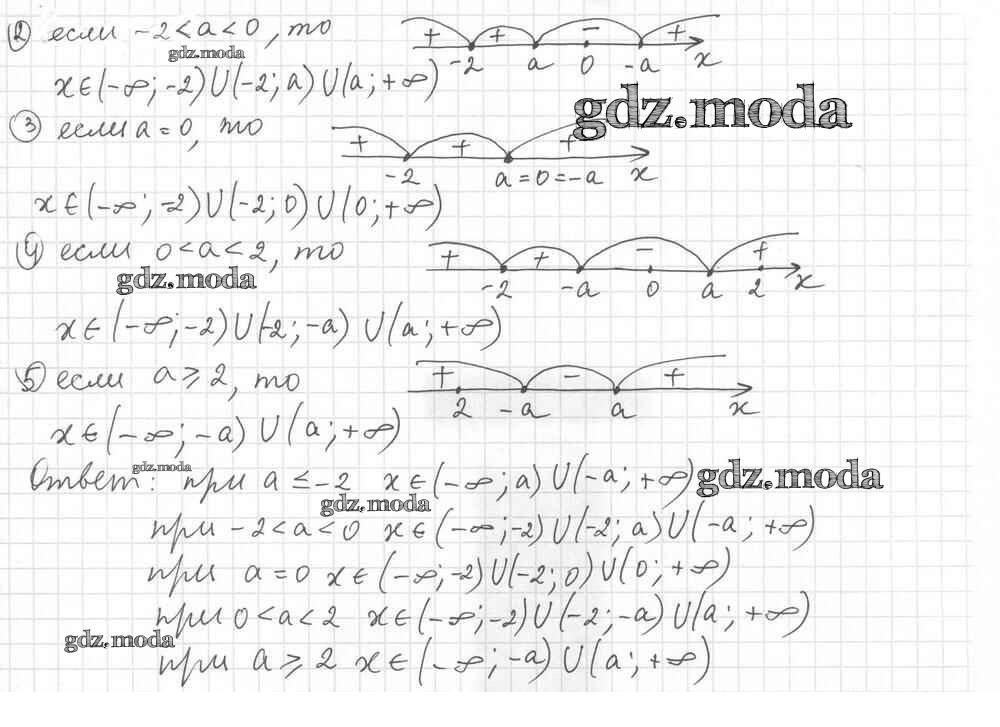 ② если -2<a<0, то
+ + - +
-2 a 0 -a x
gdz.moda
x∈(-∞; -2)∪(-2; a)∪(a; +∞)
gdz.moda
③ если a = 0, то
+ + +
-2 a = 0 = -a x
x∈(-∞; -2)∪(-2; 0)∪(0; +∞)
④ если 0<a<2, то
+ + - +
-2 -a 0 a 2 x
gdz.moda
x∈(-∞; -2)∪(-2; -a) ∪(a; +∞)
⑤ если a ⩾ 2, то
+ - +
2 -a a x
x∈(-∞; -a) ∪(a; +∞)
gdz.moda
Ответ: при a ≤ -2 x∈(-∞; a)∪(-a; +∞)
gdz.moda
gdz.moda
при -2<a<0 x∈(-∞; -2)∪(-2; a)∪(-a; +∞)
при a = 0 x∈(-∞; -2)∪(-2; 0)∪(0; +∞)
при 0<a<2 x∈(-∞; -2)∪(-2; -a)∪(a; +∞)
gdz.moda
при a ⩾ 2 x∈(-∞; -a) ∪(a; +∞)